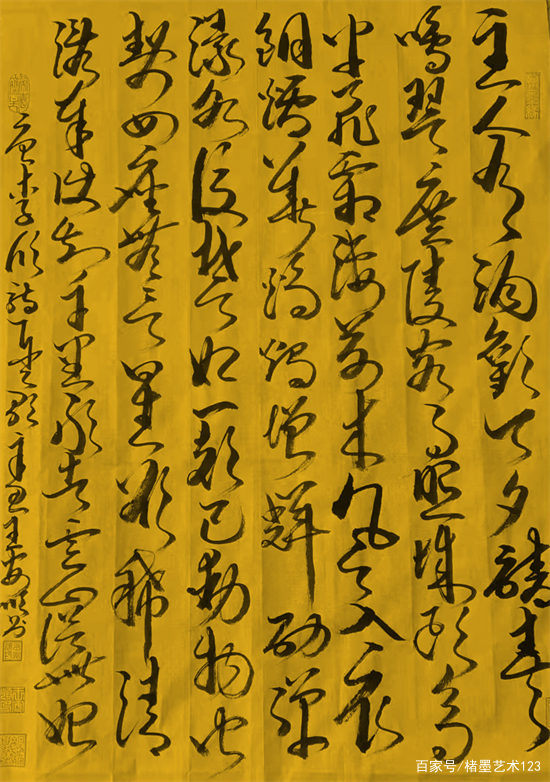 主人有酒歡今夕請奏
鳴琴廣陵客月照城頭烏
半飛霜淒萬木風入衣
銅爐華燭燭增輝初彈
淥水後楚妃一聲已動物皆
靜四座無言星欲稀清
淮奉使千里敢告雲山從此始
唐李頎詩琴歌辛丑王
百家号/楮墨艺术123